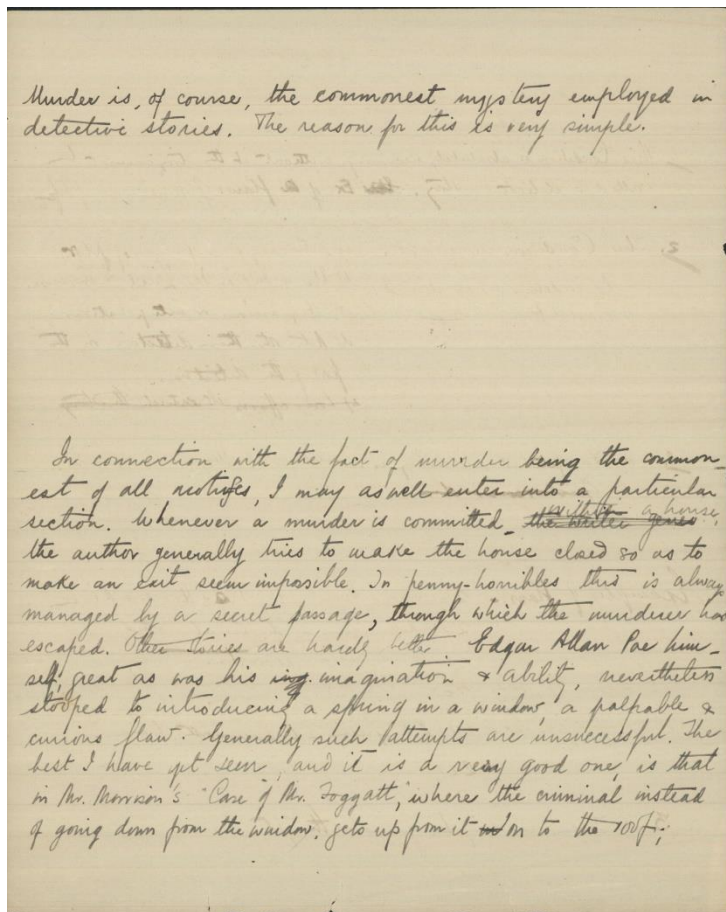 Murder is, of course, the commonest mystery employed in
detective stories. The reason for this is very simple.
In connection with the fact of murder being the common-
est of all motifs, I may as well enter into a particular
section. Whenever a murder is committed within a house,
the writer genes
the author generally tries to make the house closed so as to
make an exit seem impossible. In penny-horribles this is always
managed by a secret passage, through which the murderer has
escaped. Other stories are hardly better. Edgar Allan Poe him-
self, great as was his imagination & ability, nevertheless
stooped to introducing a spring in a window, a palpable &
curious flaw. Generally such attempts are unsuccessful. The
best I have yet seen, and it is a very good one, is that
in Mr. Morrison's "Case of Mr. Foggatt," where the criminal instead
of going down from the window, gets up from it on to the roof;